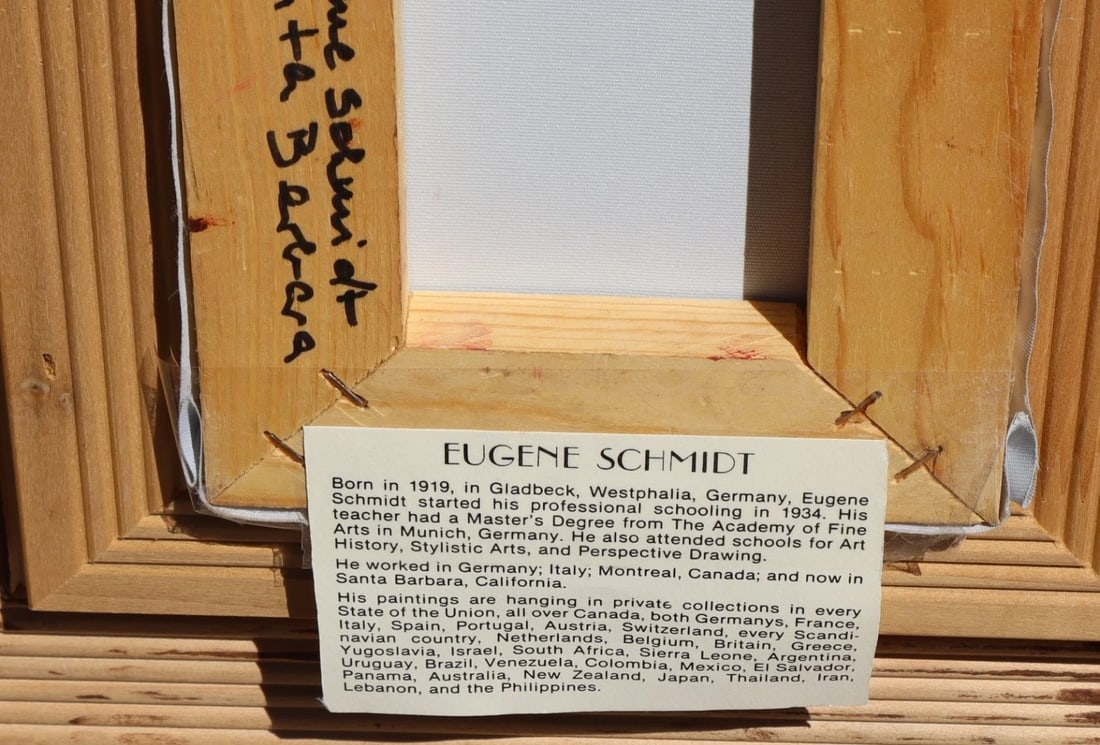 me Schmidt
ta Barbara
EUGENE SCHMIDT
Born in 1919, in Gladbeck, Westphalia, Germany, Eugene
Schmidt started his professional schooling in 1934. His
teacher had a Master's Degree from The Academy of Fine
Arts in Munich, Germany. He also attended schools for Art
History, Stylistic Arts, and Perspective Drawing.
He worked in Germany; Italy; Montreal, Canada; and now in
Santa Barbara, California.
His paintings are hanging in private collections in every
State of the Union, all over Canada, both Germanys, France,
Italy, Spain, Portugal, Austria, Switzerland, every Scandi-
navian country, Netherlands, Belgium, Britain, Greece,
Yugoslavia, Israel, South Africa, Sierra Leone, Argentina,
Uruguay, Brazil, Venezuela, Colombia, Mexico, El Salvador,
Panama, Australia, New Zealand, Japan, Thailand, Iran,
Lebanon, and the Philippines.